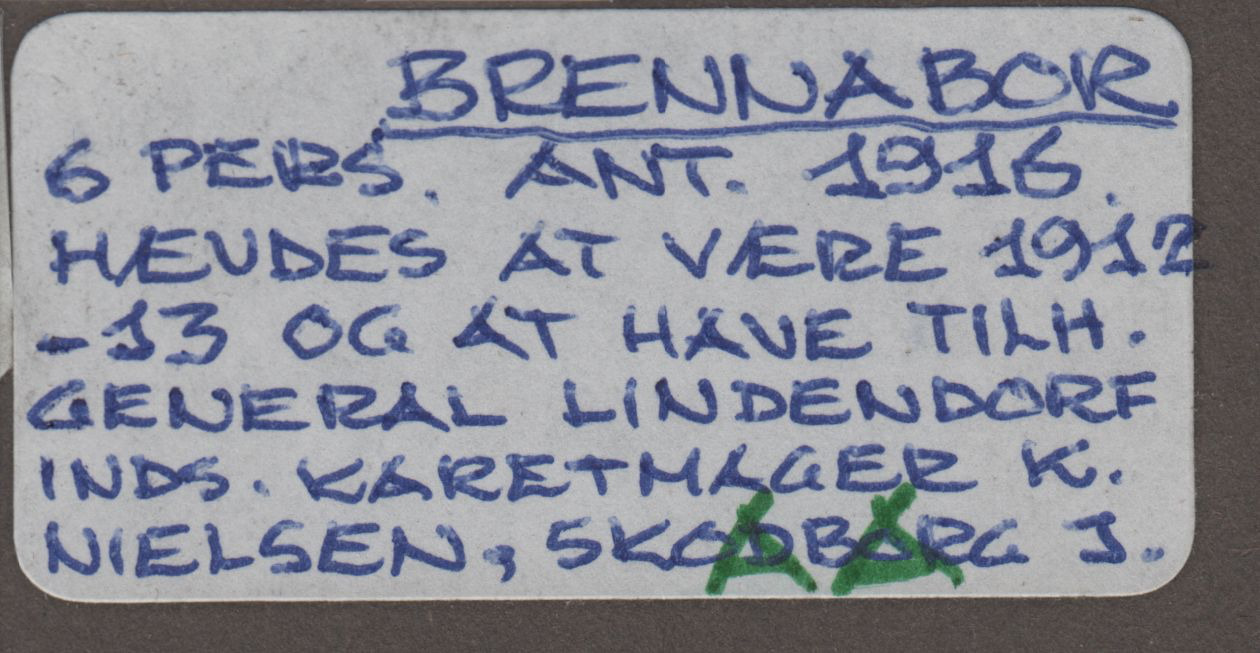 BRENNABOR
6 PERS. ANT. 1916.
HÆVDES AT VÆRE 1912
-13 OG AT HAVE TILH.
GENERAL LINDENDORF
INDS. KARETMAGER K.
NIELSEN, SKODBORG J.
AA